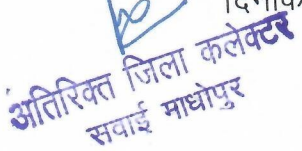 दिनांक
अतिरिक्त जिला कलेक्टर
सवाई माधोपुर